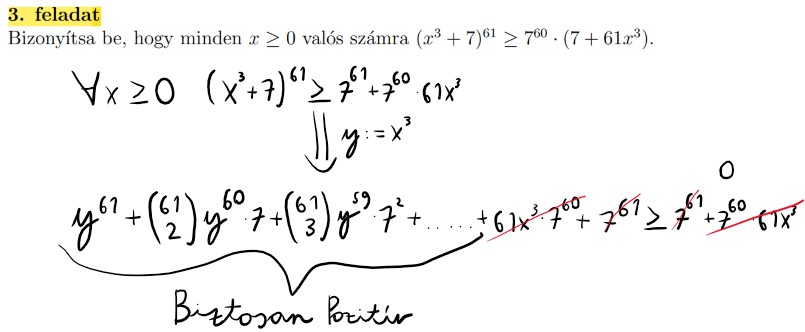 3. feladat
Bizonyítsa be, hogy minden x ≥ 0 valós számra (x³ + 7)⁶¹ ≥ 7⁶⁰ · (7 + 61x³).
∀x ≥ 0 (x³+7)⁶¹ ≥ 7⁶¹+7⁶⁰·61x³
⇓ y := x³
0
y⁶¹ + (61 2) y⁶⁰·7 + (61 3) y⁵⁹·7² + ...... + 61x³·7⁶⁰ + 7⁶¹ ≥ 7⁶¹ + 7⁶⁰·61x³
Biztosan Pozitív